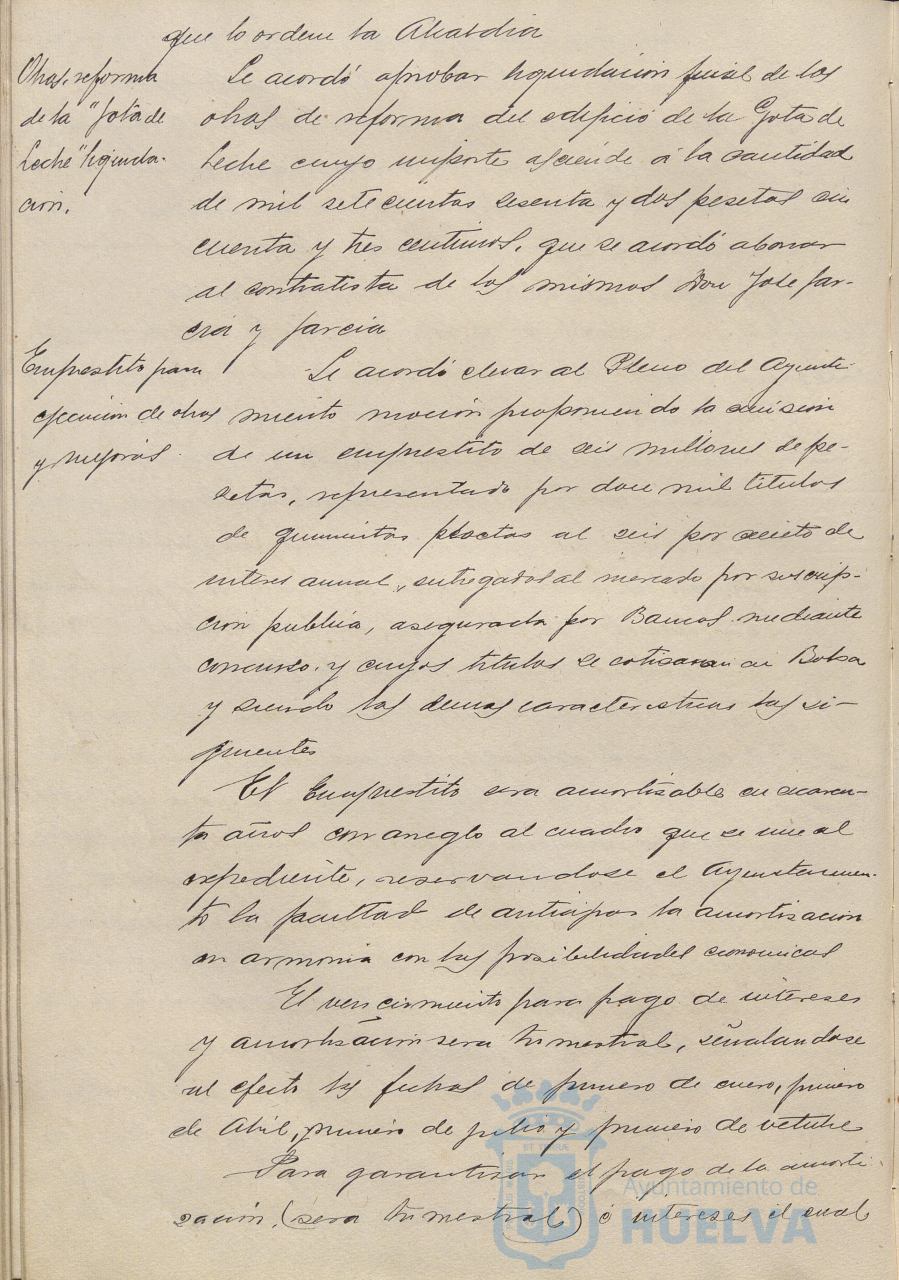 que lo ordene la Alcaldia
Obras reforma
de la "Gota de
Leche" liquida-
ción.
Se acordó aprobar liquidacion final de las
obras de reforma del edificio de la Gota de
Leche cuyo importe asciende á la cantidad
de mil setecientas sesenta y dos pesetas cin
cuenta y tres centimos, que se acordó abonar
al contratista de las mismas Don José Gar-
cia y Garcia
Empréstito para
ejecucion de obras
y mejoras.
Se acordó elevar al Pleno del Ayunta-
miento moción proponiendo la emision
de un emprestito de seis millones de pe-
setas, representado por doce mil titulos
de quinientas pesetas al seis por ciento de
interes anual, entregados al mercado por suscrip-
cion publica, asegurada por Bancos mediante
concurso y cuyos titulos se cotizaran en Bolsa
y siendo las demas caracteristicas las si-
guientes
El Emprestito sera amortizable en cuaren-
ta años con arreglo al cuadro que se une al
expediente, reservandose el Ayuntamien-
to la facultad de anticipar la amortizacion
en armonia con las posibilidades economicas
El vencimiento para pago de intereses
y amortizacion sera trimestral, señalandose
al efecto las fechas de primero de enero, primero
de Abril, primero de julio y primero de octubre
Para garantizar el pago de la amorti-
zación, (sera trimestral) é intereses el cual
Ayuntamiento de
HUELVA